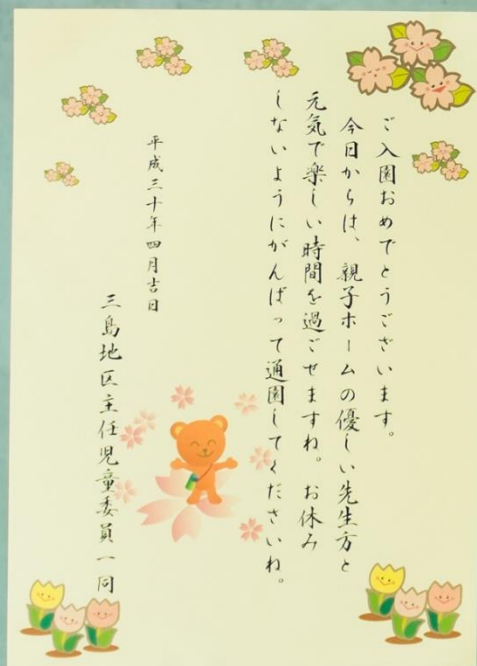 ご入園おめでとうございます。
今日からは、親子ホームの優しい先生方と
元気で楽しい時間を過ごせますね。お休み
しないようにがんばって通園してくださいね。
平成三十年四月吉日
三島地区主任児童委員一同